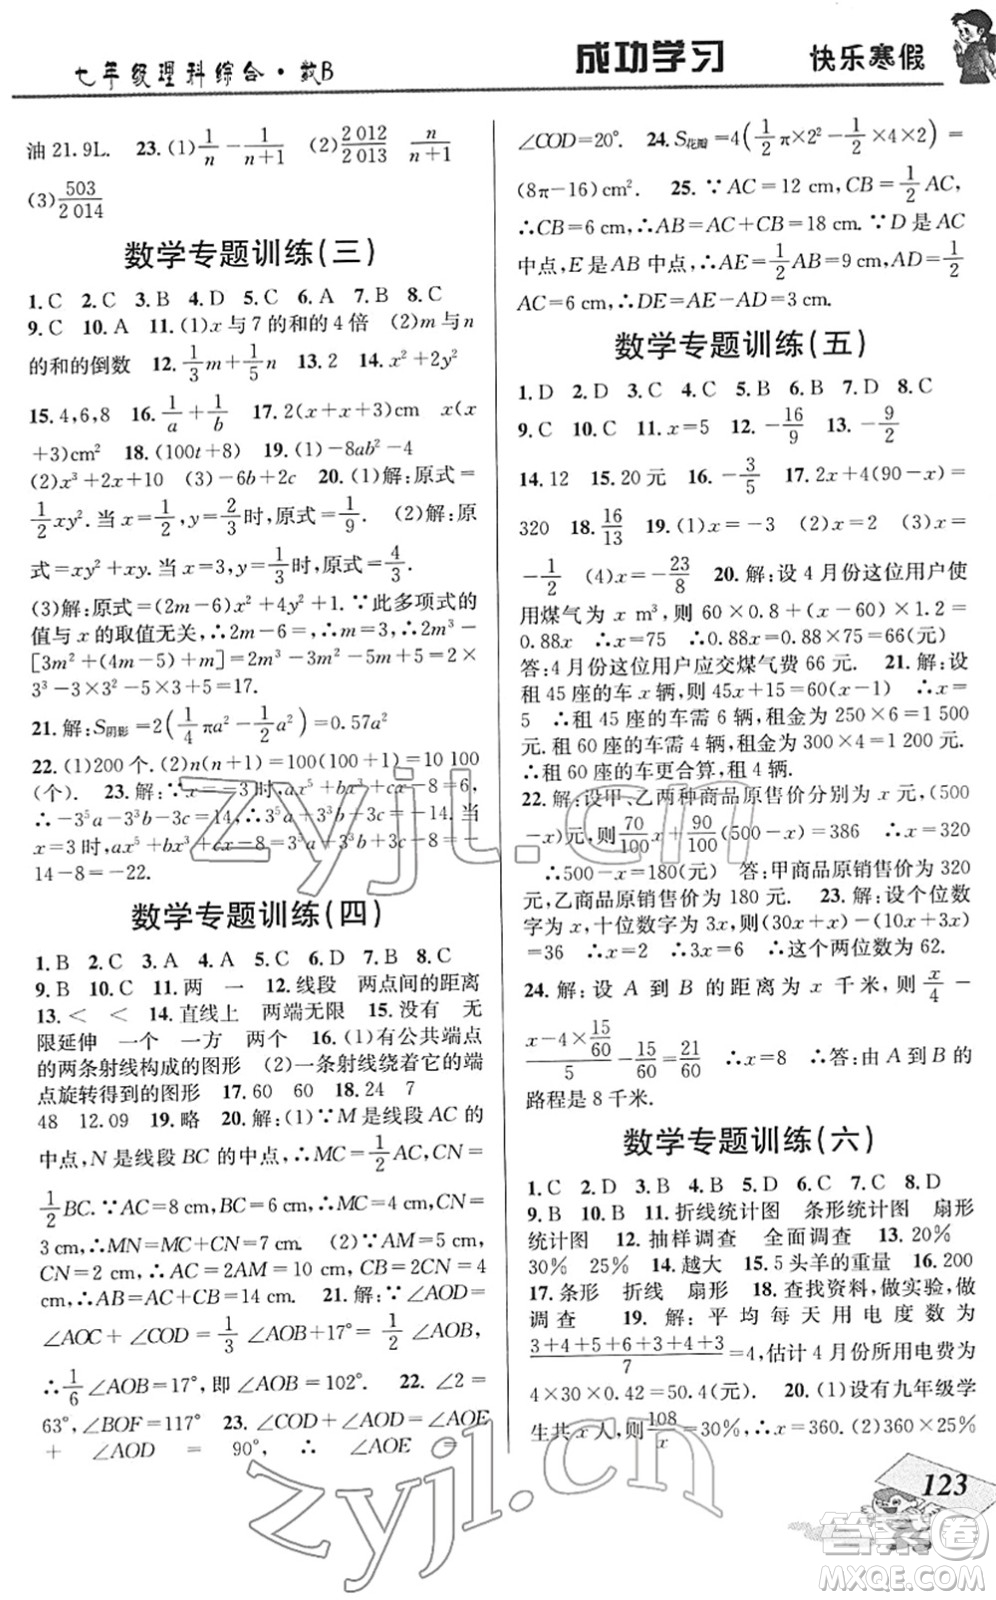 七年级理科综合·数B
成功学习
快乐寒假
油 21.9L. 23. (1) 1/n − 1/(n+1) (2) 2 012/2 013 n/(n+1)
(3) 503/2 014
数学专题训练(三)
1. C 2. C 3. B 4. D 5. C 6. A 7. B 8. C
9. C 10. A 11. (1) x 与 7 的和的 4 倍 (2) m 与 n
的和的倒数 12. 1/3 m + 1/5 n 13. 2 14. x²+2y²
15. 4,6,8 16. 1/a + 1/b 17. 2(x+x+3)cm x(x
+3)cm² 18. (100t+8) 19. (1)−8ab²−4
(2)x³+2x+10 (3)−6b+2c 20. (1)解:原式=
1/2 xy². 当 x=1/3, y=2/3 时,原式=1/9. (2)解:原
式=xy²+xy. 当 x=3, y=1/3 时,原式=4/3.
(3)解:原式=(2m−6)x²+4y²+1. ∵此多项式的
值与 x 的取值无关,∴2m−6=,∴m=3,∴2m³−
[3m²+(4m−5)+m]=2m³−3m²−5m+5=2×
3³−3×3²−5×3+5=17.
21. 解:S阴影=2(1/4 πa²−1/2 a²)=0.57a²
22. (1)200 个. (2)n(n+1)=100(100+1)=10 100
(个). 23. 解:∵x=−3 时,ax⁵+bx³+cx−8=6,
∴−3⁵a−3³b−3c=14,∴3⁵a+3³b+3c=−14. 当
x=3 时,ax⁵+bx³+cx−8=3⁵a+3³b+3c−8=−
14−8=−22.
数学专题训练(四)
1. B 2. C 3. A 4. A 5. C 6. D 7. B 8. C
9. B 10. C 11. 两 一 12. 线段 两点间的距离
13. < < 14. 直线上 两端无限 15. 没有 无
限延伸 一个 一方 两个 16. (1)有公共端点
的两条射线构成的图形 (2)一条射线绕着它的端
点旋转得到的图形 17. 60 60 18. 24 7
48 12.09 19. 略 20. 解:(1)∵M 是线段 AC 的
中点,N 是线段 BC 的中点,∴MC=1/2 AC,CN=
1/2 BC. ∵AC=8 cm,BC=6 cm,∴MC=4 cm,CN=
3 cm,∴MN=MC+CN=7 cm. (2)∵AM=5 cm,
CN=2 cm,∴AC=2AM=10 cm,BC=2CN=4
cm,∴AB=AC+BC=14 cm. 21. 解:∵∠AOD=
∠AOC+∠COD=1/3∠AOB+17°=1/2∠AOB,
∴1/6∠AOB=17°,即∠AOB=102°. 22. ∠2=
63°,∠BOF=117° 23. ∠COD+∠AOE=∠AOE
+ ∠AOD = 90°, ∴ ∠AOE =
∠COD=20°. 24. S花瓣=4(1/2 π×2²−1/2×4×2)=
(8π−16)cm². 25. ∵AC=12 cm,CB=1/2 AC,
∴CB=6 cm,∴AB=AC+CB=18 cm. ∵D 是 AC
中点,E 是 AB 中点,∴AE=1/2 AB=9 cm,AD=1/2
AC=6 cm,∴DE=AE−AD=3 cm.
数学专题训练(五)
1. D 2. D 3. C 4. C 5. B 6. B 7. D 8. C
9. C 10. C 11. x=5 12. −16/9 13. −9/2
14. 12 15. 20 元 16. −3/5 17. 2x+4(90−x)=
320 18. 16/13 19. (1)x=−3 (2)x=2 (3)x=
−1/2 (4)x=−23/8 20. 解:设 4 月份这位用户使
用煤气为 x m³,则 60×0.8+(x−60)×1.2=
0.88x ∴x=75 ∴0.88x=0.88×75=66(元)
答:4 月份这位用户应交煤气费 66 元. 21. 解:设
租 45 座的车 x 辆,则 45x+15=60(x−1) ∴x=
5 ∴租 45 座的车需 6 辆,租金为 250×6=1 500
元. 租 60 座的车需 4 辆,租金为 300×4=1 200 元.
∴租 60 座的车更合算,租 4 辆.
22. 解:设甲、乙两种商品原售价分别为 x 元,(500
−x)元,则 70/100 x+90/100(500−x)=386 ∴x=320
∴500−x=180(元) 答:甲商品原销售价为 320
元,乙商品原销售价为 180 元. 23. 解:设个位数
字为 x,十位数字为 3x,则(30x+x)−(10x+3x)
=36 ∴x=2 ∴3x=6 ∴这个两位数为 62.
24. 解:设 A 到 B 的距离为 x 千米,则 x/4 −
(x−4×15/60)/5 = 15/60 + 21/60 ∴x=8 ∴答:由 A 到 B 的
路程是 8 千米.
数学专题训练(六)
1. C 2. D 3. A 4. B 5. D 6. C 7. C 8. D
9. B 10. B 11. 折线统计图 条形统计图 扇形
统计图 12. 抽样调查 全面调查 13. 20%
30% 25% 14. 越大 15. 5 头羊的重量 16. 200
17. 条形 折线 扇形 18. 查找资料,做实验,做
调查 19. 解:平均每天用电度数为
(3+4+5+6+3+4+3)/7=4,估计 4 月份所用电费为
4×30×0.42=50.4(元). 20. (1)设有九年级学
生共 x 人,则 108/x=30%,∴x=360. (2)360×25%
123
zyjl.cn
zyjl.cn
答案卷
MXQE.COM